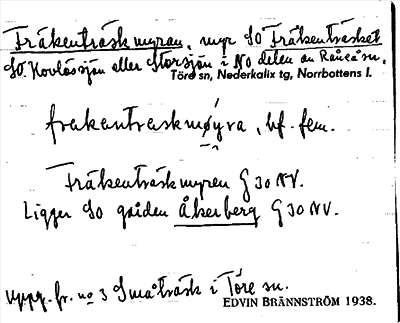 Fräkenträskmyran, myr SO Fräkenträsket
SO Hovlössjön eller Storsjön i NO delen av Råneå sn,
Töre sn, Nederkalix tg, Norrbottens l.
frakantraskmøyra, bf. fem.
Fräkenträskmyren G30NV.
Ligger SO gården Åkerberg G30NV.
Uppg. fr. no 3 Småträsk i Töre sn.
EDVIN BRÄNNSTRÖM 1938.